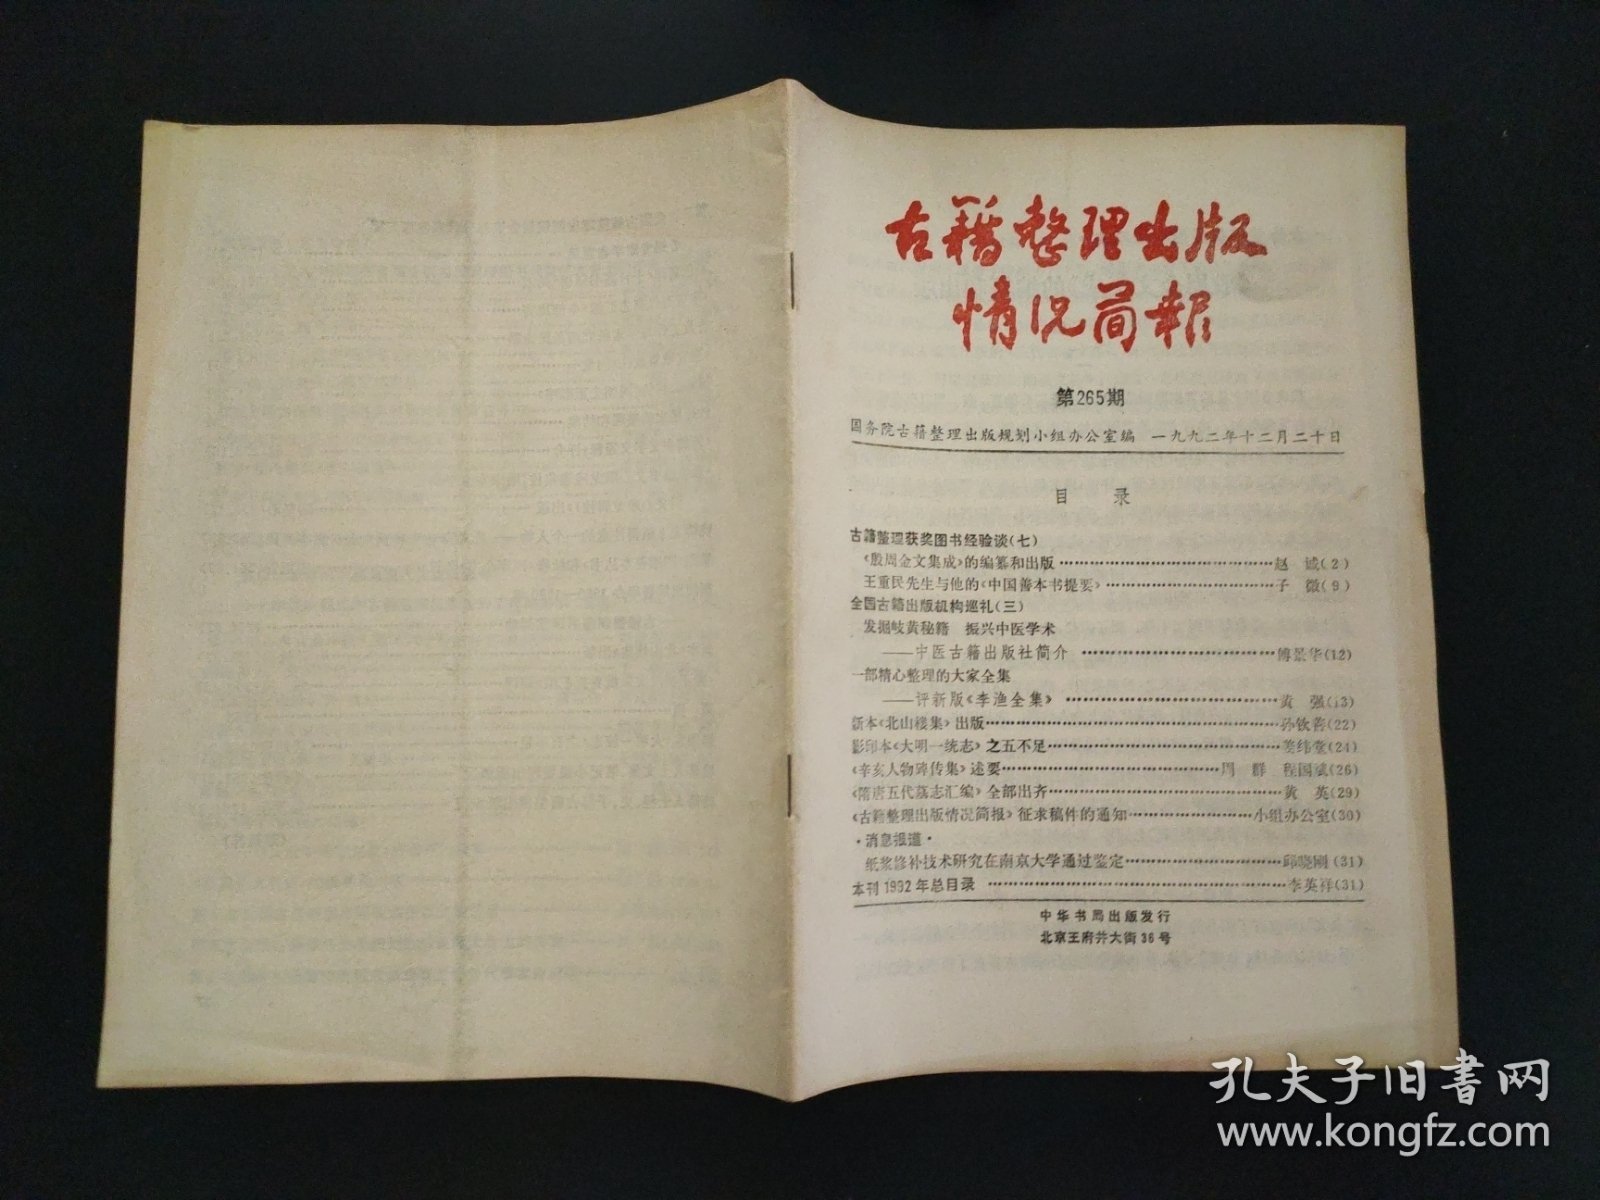 古籍整理出版
情况简报
第265期
国务院古籍整理出版规划小组办公室编 一九九二年十二月二十日
目 录
古籍整理获奖图书经验谈(七)
《殷周金文集成》的编纂和出版……赵 诚(2)
王重民先生与他的《中国善本书提要》……子 微(9)
全国古籍出版机构巡礼(三)
发掘岐黄秘籍 振兴中医学术
——中医古籍出版社简介……傅景华(12)
一部精心整理的大家全集
——评新版《李渔全集》……黄 强(13)
新本《北山楼集》出版……孙钦善(22)
影印本《大明一统志》之五不足……姜纬堂(24)
《辛亥人物碑传集》述要……周 群 程国斌(26)
《隋唐五代墓志汇编》全部出齐……黄 英(29)
《古籍整理出版情况简报》征求稿件的通知……小组办公室(30)
·消息报道·
纸浆修补技术研究在南京大学通过鉴定……邱晓刚(31)
本刊1992年总目录……李英祥(31)
中华书局出版发行
北京王府井大街36号
孔夫子旧書网
www.kongfz.com